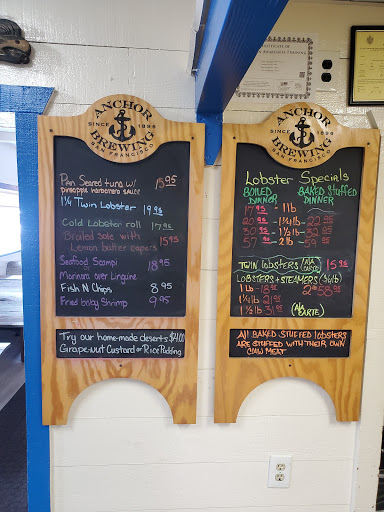 ANCHOR
SINCE 1896
BREWING
SAN FRANCISCO
Pan Seared tuna w/ 15.95
pineapple Habanero sauce
1¼ Twin Lobster 19.95
Cold Lobster roll 17.95
Broiled Sole with
Lemon butter capers 15.95
Seafood Scampi 18.95
Marinara over Linguine
Fish N Chips 8.95
Fried bay Shrimp 9.95
Try our home-made deserts $4.00
Grape-nut Custard or Rice Pudding
ANCHOR
SINCE 1896
BREWING
SAN FRANCISCO
Lobster Specials
BOILED BAKED STUFFED
DINNER DINNER
17.95 - 1lb
20.95 - 1¼lb - 22.95
30.95 - 1½lb - 32.95
57.95 - 2lb - 59.95
TWIN lobsters (A/A CARTE) 15.95
LOBSTERS + STEAMERS
1 lb - 18.95
1¼lb 21.95
1½lb 31.95 (A/A CARTE)
All BAKED STUFFED lobsters
ARE STUFFED WITH THEIR OWN
CLAW MEAT